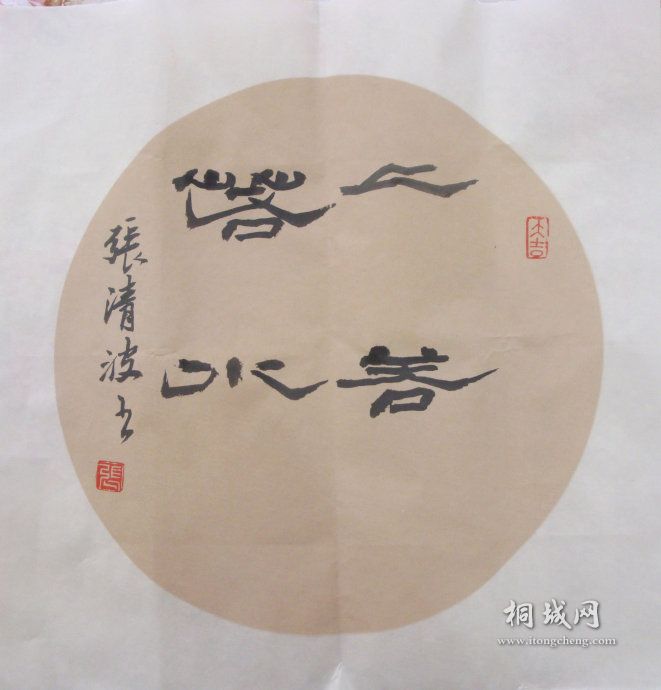 上善
若水
張清波书
大吉
張
桐城网
www.itongcheng.com